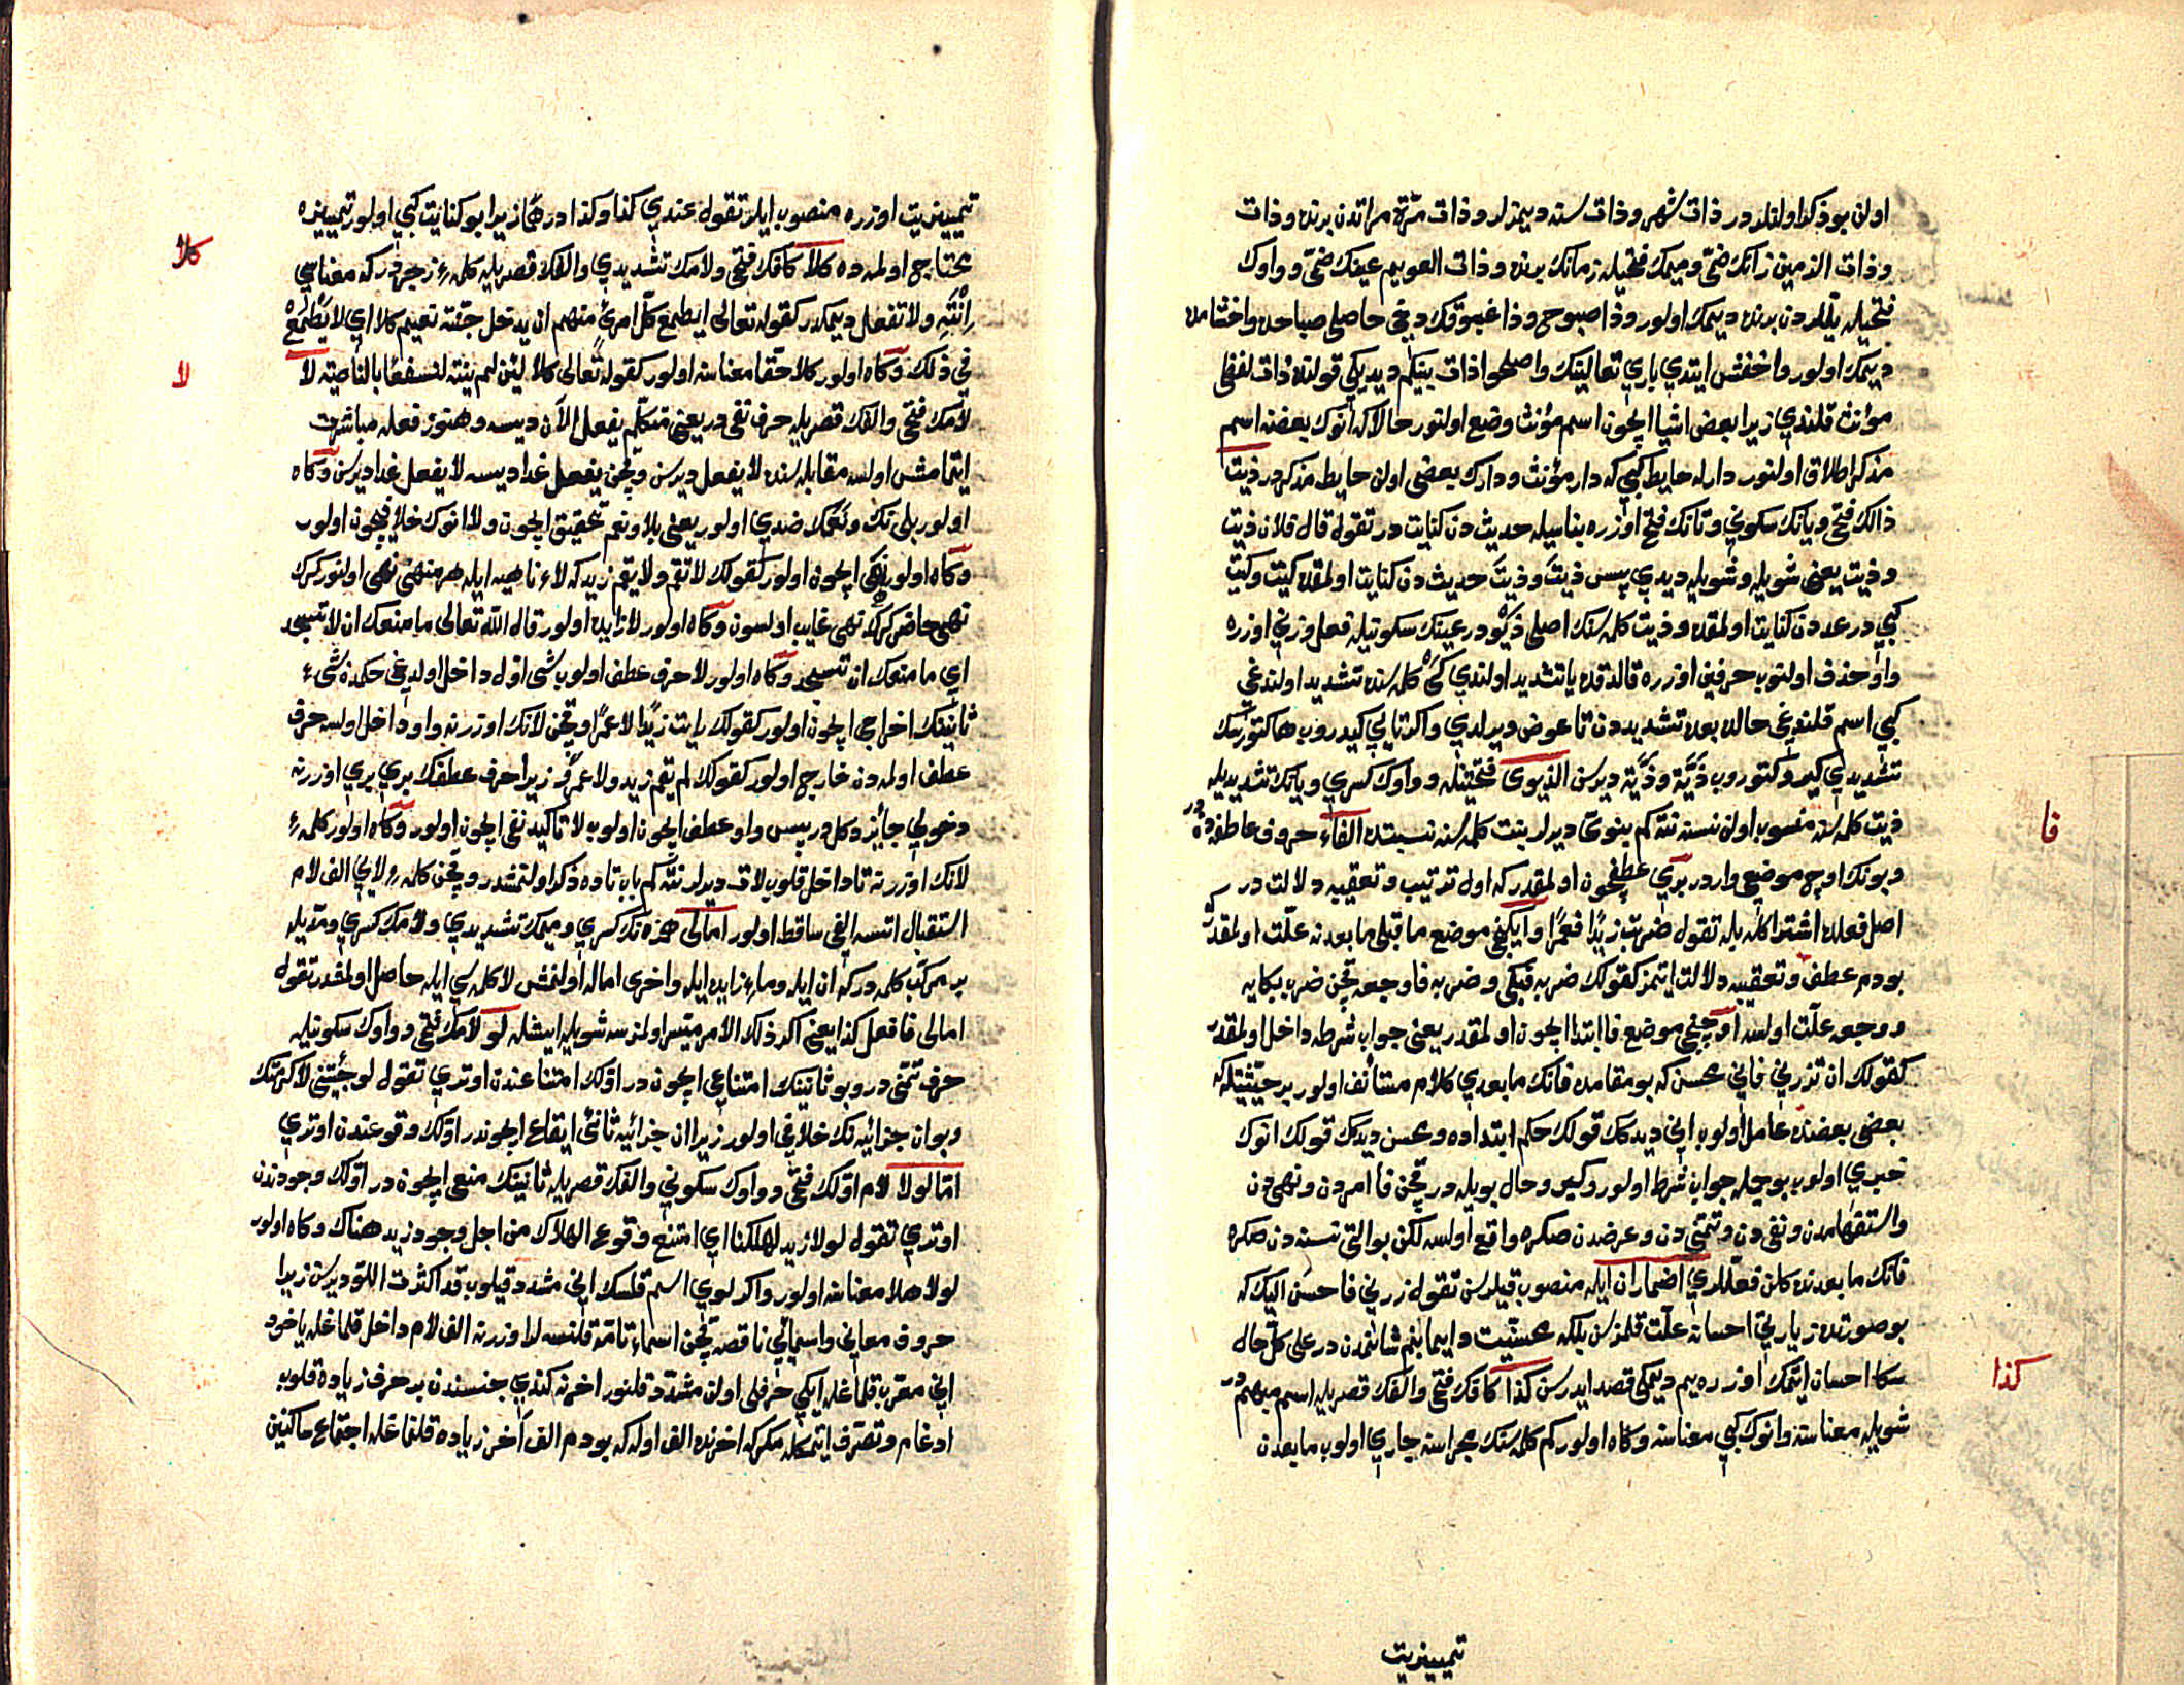 اولان بو ذكر اولنلر در ذات شهر وذات سنه ديمزلر وذات مرّة مراتدن برنده وذات
وذات الزمين زانك ضمّى وميمك فتحيله زمانك برنده وذات العويم عينك ضمّى وواوك
فتحيله ييللردن برنده ديمك اولور وذا صبوح وذا غبوقك دخى حاصلى صباحده واخشامده
ديمك اولور واخفش ايتدي باري تعالينك واصلحوا ذات بينكم ديديكى قولنده ذات لفظى
مؤنث قلندي زيرا بعض اشيا ايچون اسم مؤنث وضع اولنور حالا كه انوك بعضنه اسم
مذكر اطلاق اولنور دار له حايط كبي كه دار مؤنث ودارك بعضى اولن حايط مذكر در ذيت
ذالك فتح ويانك سكوني وتانك فتح اوزره بناسيله حديث دن كنايت در تقول قال فلان ذيت
وذيت يعنى شويله وشويله ديدي پس ذيت وذيت حديث دن كنايت اولمقده كيت وكيت
كبي در عدد دن كنايت اولمقده وذيت كلمه سنك اصلى ذيو در عينك سكونيله فعل وزني اوزره
واو حذف اولنوب حرفين اوزره قالدقده يا تشديد اولندي كى كلمه سنده تشديد اولندغي
كبي اسم قلندغى حالده بعده تشديددن تا عوض ويرلدي واكر تايي كيدروب ها كتورسك
تشديدي كيرو كتوروب ذيّة وذيّة ديرسن الذيوى فتحتينله وواوك كسري ويانك تشديديله
ذيت كلمه سنه منسوب اولن نسنه نته كم بنوىّ ديرلر بنت كلمه سنه نسبتده الفاء حروف عاطفه دن در
وبونك اوچ موضعى واردر بري عطف ايچون اولمقدر كه اول ترتيب وتعقيبه دلالت در
اصل فعلده اشتراك بله تقول ضربت زيدًا فعمرًا وايكنجى موضع ما قبلى ما بعدنه علّت اولمقدر
بودم عطف وتعقيبه دلالت ايتمز كقولك ضربه فبكى وضربه فاوجعه قچن ضرب بكايه
ووجعه علّت اولسه اوچنجى موضع فا ابتدا ايچون اولمقدر يعنى جواب شرطه داخل اولمقدر
كقولك ان تزرني فاني محسن كه بو مقامده فانك ما بعدي كلام مستأنف اولور بر حيثيتله كه
بعضى بعضنده عامل اولوب اني ديدكك قولك حكم ابتداده ومحسن ديدكك قولك انوك
خبري اولوب بو جمله جواب شرط اولور وكيرو حال بويله در قچن فا امردن ونهى دن
واستفهامدن ونفى دن وتمنّى دن وعرضدن صكره واقع اولسه لكن بو التى نسنه دن صكره
فانك ما بعدنده كلن فعللري اضمار ان ايله منصوب قيلورسن تقول زرني فاحسن اليك كه
بو صورتده زيارتى احسانه علّت قلمزسن بلكه محسنيت دايما بنم شانمدن در على كل حال
سكا احسان ايتمك اوزره يم ديمكى قصد ايدرسن كذا كافك فتحى والفك قصريله اسم مبهم در
شويله معناسنه وانوك كبي معناسنه وكاه اولور كم كلمه سنك مجراسنه جاري اولوب ما بعدن
فا
كذا
تمييزيت
تمييزيت اوزره منصوب ايلر تقول عندي كذا وكذا درهمًا زيرا بو كنايت كبي اولور تمييزه
محتاج اولمه ده كلا كافك فتحى ولامك تشديدي والفك قصريله كلمهٔ زجر در كه معناسي
انته ولا تفعل ديمكدر كقوله تعالى ايطمع كل امرئ منهم ان يدخل جنّة نعيم كلا اي لا يطمع
في ذلك وكاه اولور كلا حقّا معناسنه اولور كقوله تعالى كلا لئن لم ينته لنسفعًا بالناصية لا
لامك فتحى والفك قصريله حرف نفى در يعنى متكلم يفعل الآن ديسه وهنوز فعله مباشرت
ايتمامش اولسه مقابله سنده لا يفعل ديرسن وقچن يفعل غدا ديسه لا يفعل غدا ديرسن وكاه
اولور بلى نك ونعمك ضدي اولور يعنى بلا ونعم تحقيق ايچون ولا انوك خلافيچون اولور
وكاه اولور نهى ايچون اولور كقولك لا تقم ولا يقم زيد كه لاء ناهيه ايله هر منهى نهى اولنور كرك
نهى حاضر كرك نهى غايب اولسون وكاه اولور لا زايده اولور قال الله تعالى ما منعك ان لا تسجد
اي ما منعك ان تسجد وكاه اولور لا حرف عطف اولوب شى اول داخل اولديغى حكمدن شىء
ثانينك اخراجى ايچون اولور كقولك رايت زيدًا لا عمرًا وقچن لانك اوزرنه واو داخل اولسه حرف
عطف اولمه دن خارج اولور كقولك لم يقم زيد ولا عمرو زيرا حرف عطفك بري بري اوزرنه
دخولى جايز دكلدر پس واو عطف ايچون اولوب لا تاكيد نفى ايچون اولور وكاه اولور كلمهٔ
لانك اوزرنه تا داخل قلوب لات ديرلر نته كم باب تاده ذكر اولنمشدر وقچن كلمهٔ لايي الف لام
استقبال اتسه الفى ساقط اولور امالى همزه نك كسري وميمك تشديدي ولامك كسري ومدّيله
بر مركّب كلمه در كه ان ايله وماء زايده ايله واخرى اماله اولنمش لا كلمه سي ايله حاصل اولمقدر تقول
امالى فافعل كذا يعنى اكر ذلك الامر ميسّر اولمزسه شويله ايشله لو لامك فتحى وواوك سكونيله
حرف تمنّى در وبو ثانينك امتناعى ايچون در اولك امتناعندن اوتري تقول لو جئتنى لاكرمتك
وبو ان جزائيه نك خلافى اولور زيرا ان جزائيه ثانى ايقاع ايچوندر اولك وقوعندن اوتري
امّا لولا لام اولك فتحى وواوك سكوني والفك قصريله ثانينك منعى ايچون در اولك وجودندن
اوتري تقول لولا زيد لهلكنا اي امتنع وقوع الهلاك من اجل وجود زيد هناك وكاه اولور
لولا هلا معناسنه اولور واكر لوي اسم قلسك اني مشدد قيلوب قد اكثرت اللوّ ديرسن زيرا
حروف معاني واسمائي ناقصه قچن اسماء تامّة قلنسه لر اوزرنه الف لام داخل قلمغله ياخود
اني معرب قلمغله ايكي حرفلى اولن مشدد قلنور اخرنه كندي جنسندن بر حرف زياده قلوب
ادغام وتصرّف ايتمكله مكر كه اخرنده الف اوله كه بودم الف آخر زياده قلنماغله اجتماع ساكنين
كلا
لا